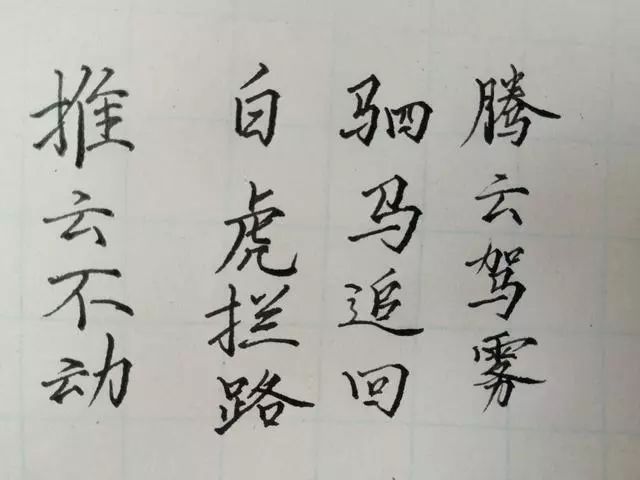 腾云驾雾
驷马追回
白虎拦路
推云不动